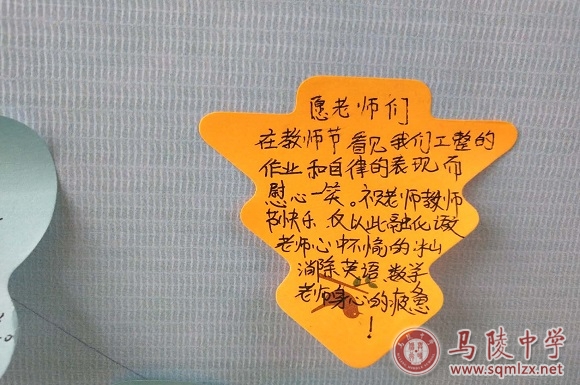 愿老师们
在教师节看见我们工整的
作业和自律的表现而
慰心一笑。祝老师教师
节快乐 仅以此融化语文
老师心中不愉的冰山
消除英语,数学
老师身心的疲惫
!
马陵中学
www.sqmlzx.net